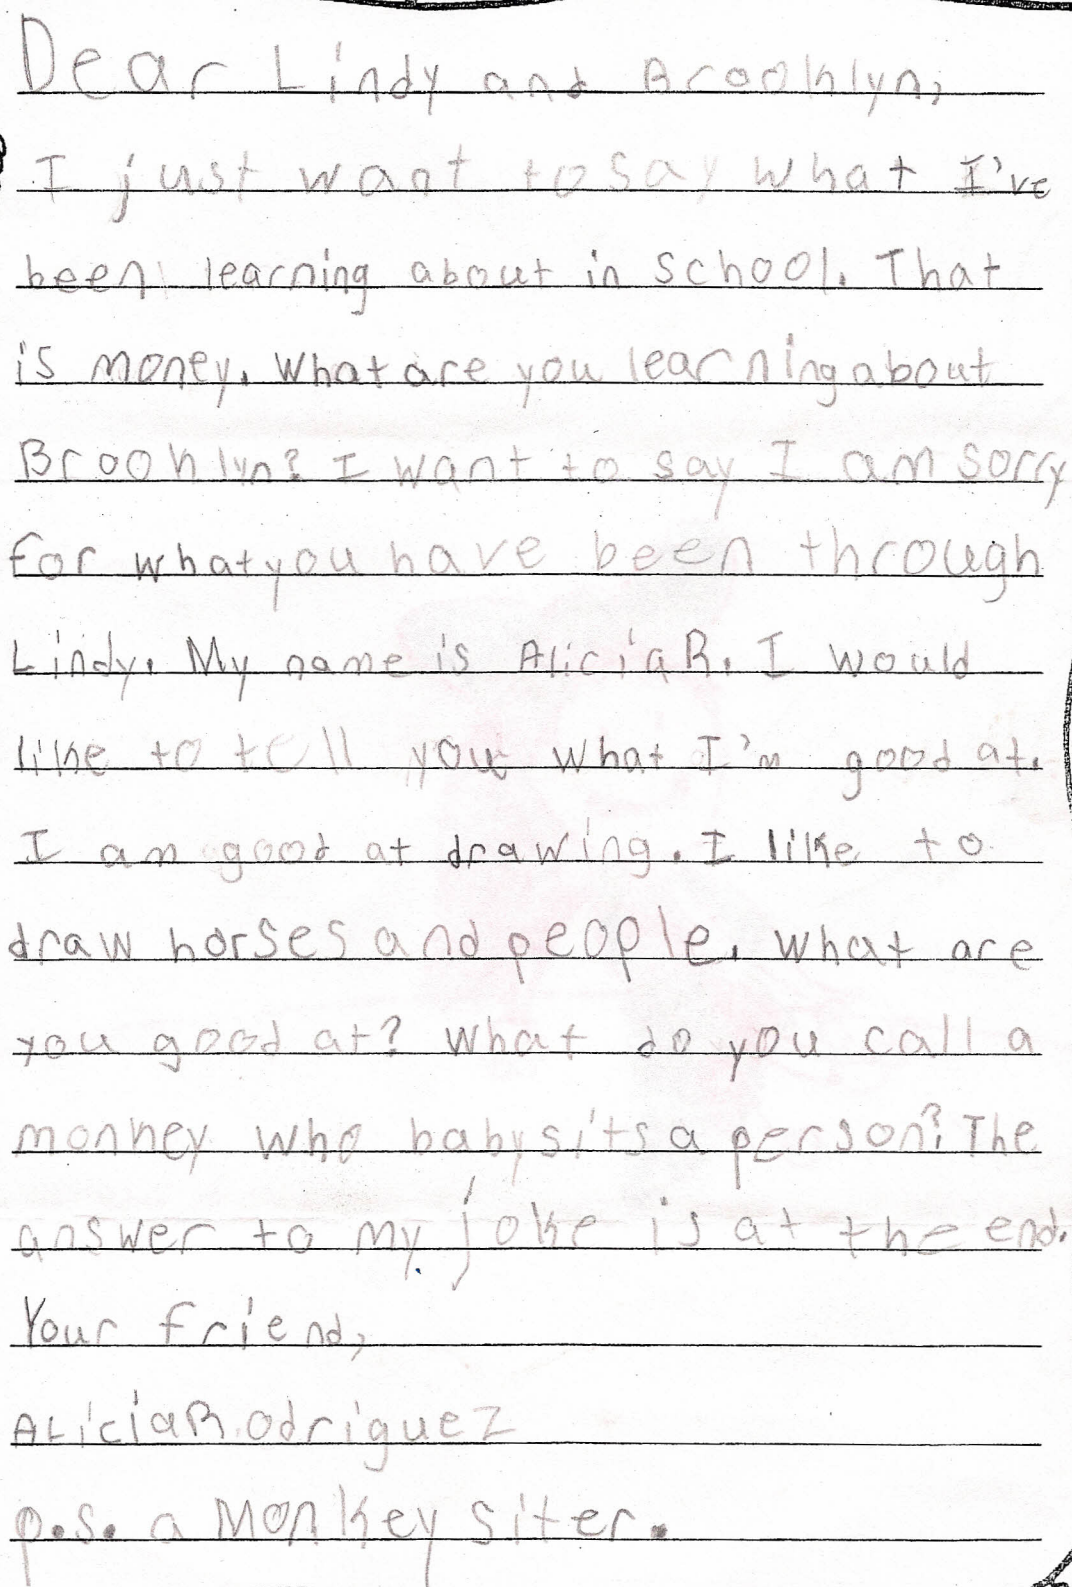 Dear Lindy and Brooklyn,
I just want to say what I've
been learning about in school. That
is money. What are you learning about
Brooklyn? I want to say I am sorry
for what you have been through
Lindy. My name is Alicia R. I would
like to tell you what I'm good at.
I am good at drawing. I like to
draw horses and people. What are
you good at? What do you call a
monkey who babysits a person? The
answer to my joke is at the end.
Your friend,
Alicia Rodriguez
p.s. a Monkey siter.